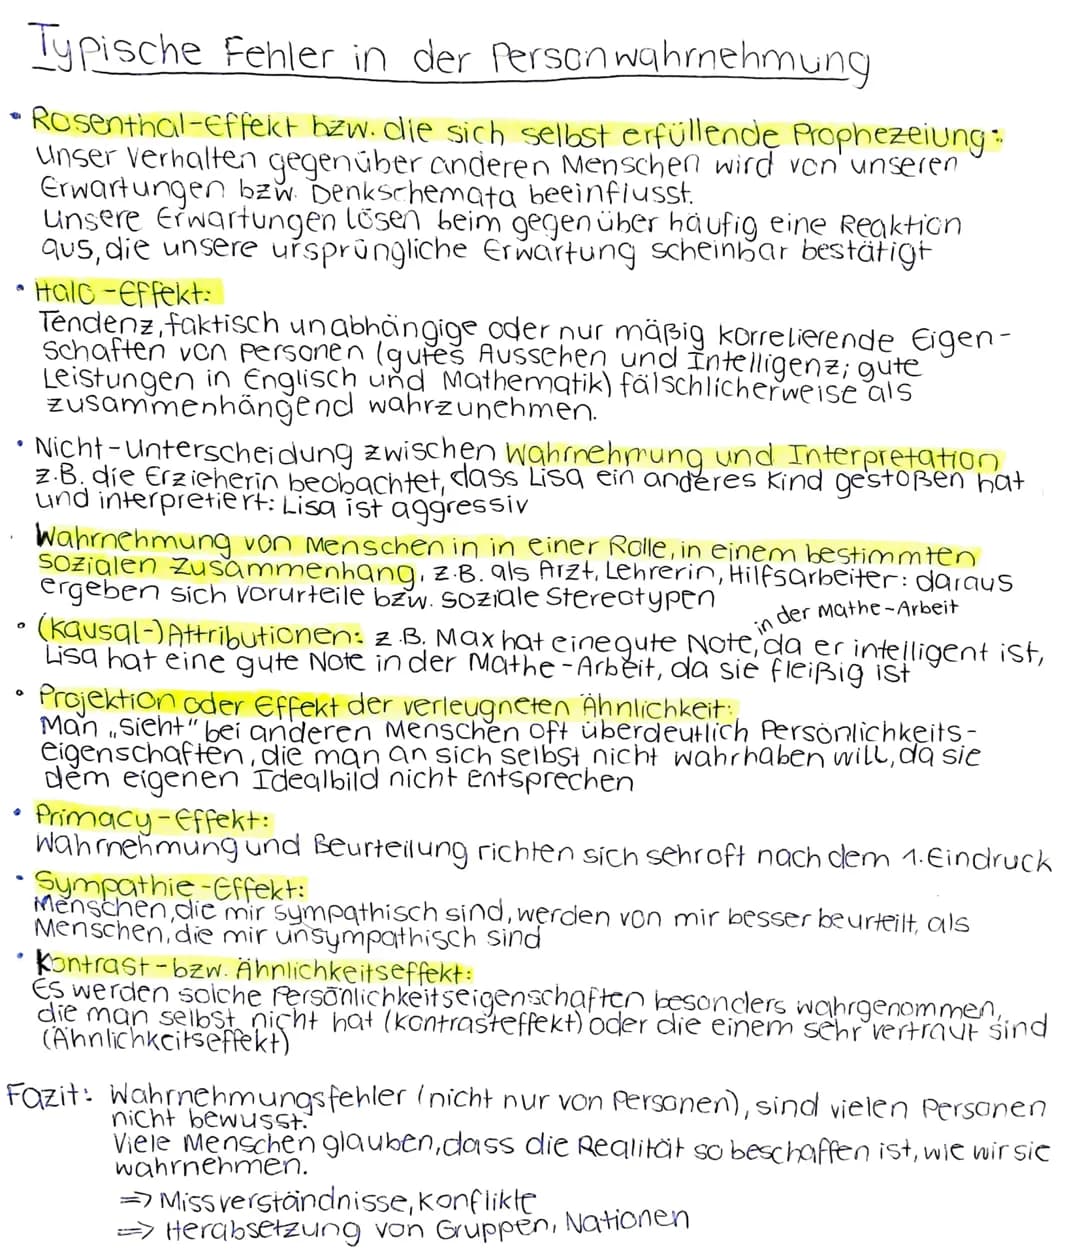 Typische Fehler in der Personwahrnehmung
• Rosenthal-Effekt bzw. die sich selbst erfüllende Prophezeiung:
Unser Verhalten gegenüber anderen Menschen wird von unseren
Erwartungen bzw. Denkschemata beeinflusst.
Unsere Erwartungen lösen beim gegenüber häufig eine Reaktion
aus, die unsere ursprüngliche Erwartung scheinbar bestätigt
• Halo-Effekt:
Tendenz, faktisch unabhängige oder nur mäßig korrelierende Eigen-
schaften von Personen (gutes Aussehen und Intelligenz; gute
Leistungen in Englisch und Mathematik) fälschlicherweise als
zusammenhängend wahrzunehmen.
• Nicht-Unterscheidung zwischen Wahrnehmung und Interpretation
z.B. die Erzieherin beobachtet, dass Lisa ein anderes Kind gestoßen hat
und interpretiert: Lisa ist aggressiv
• Wahrnehmung von Menschen in in einer Rolle, in einem bestimmten
sozialen Zusammenhang, z.B. als Arzt, Lehrerin, Hilfsarbeiter: daraus
ergeben sich Vorurteile bzw. soziale Stereotypen
in der Mathe-Arbeit
• (Kausal-)Attributionen: z.B. Max hat eine gute Note, da er intelligent ist,
Lisa hat eine gute Note in der Mathe-Arbeit, da sie fleißig ist
• Projektion oder Effekt der verleugneten Ähnlichkeit:
Man „sieht" bei anderen Menschen oft überdeutlich Persönlichkeits-
eigenschaften, die man an sich selbst nicht wahrhaben will, da sie
dem eigenen Idealbild nicht entsprechen
• Primacy-Effekt:
Wahrnehmung und Beurteilung richten sich sehr oft nach dem 1. Eindruck
• Sympathie-Effekt:
Menschen, die mir sympathisch sind, werden von mir besser beurteilt, als
Menschen, die mir unsympathisch sind
• Kontrast- bzw. Ähnlichkeitseffekt:
Es werden solche Persönlichkeitseigenschaften besonders wahrgenommen,
die man selbst nicht hat (Kontrasteffekt) oder die einem sehr vertraut sind
(Ähnlichkeitseffekt)
Fazit: Wahrnehmungsfehler (nicht nur von Personen), sind vielen Personen
nicht bewusst.
Viele Menschen glauben, dass die Realität so beschaffen ist, wie wir sie
wahrnehmen.
=> Missverständnisse, Konflikte
=> Herabsetzung von Gruppen, Nationen